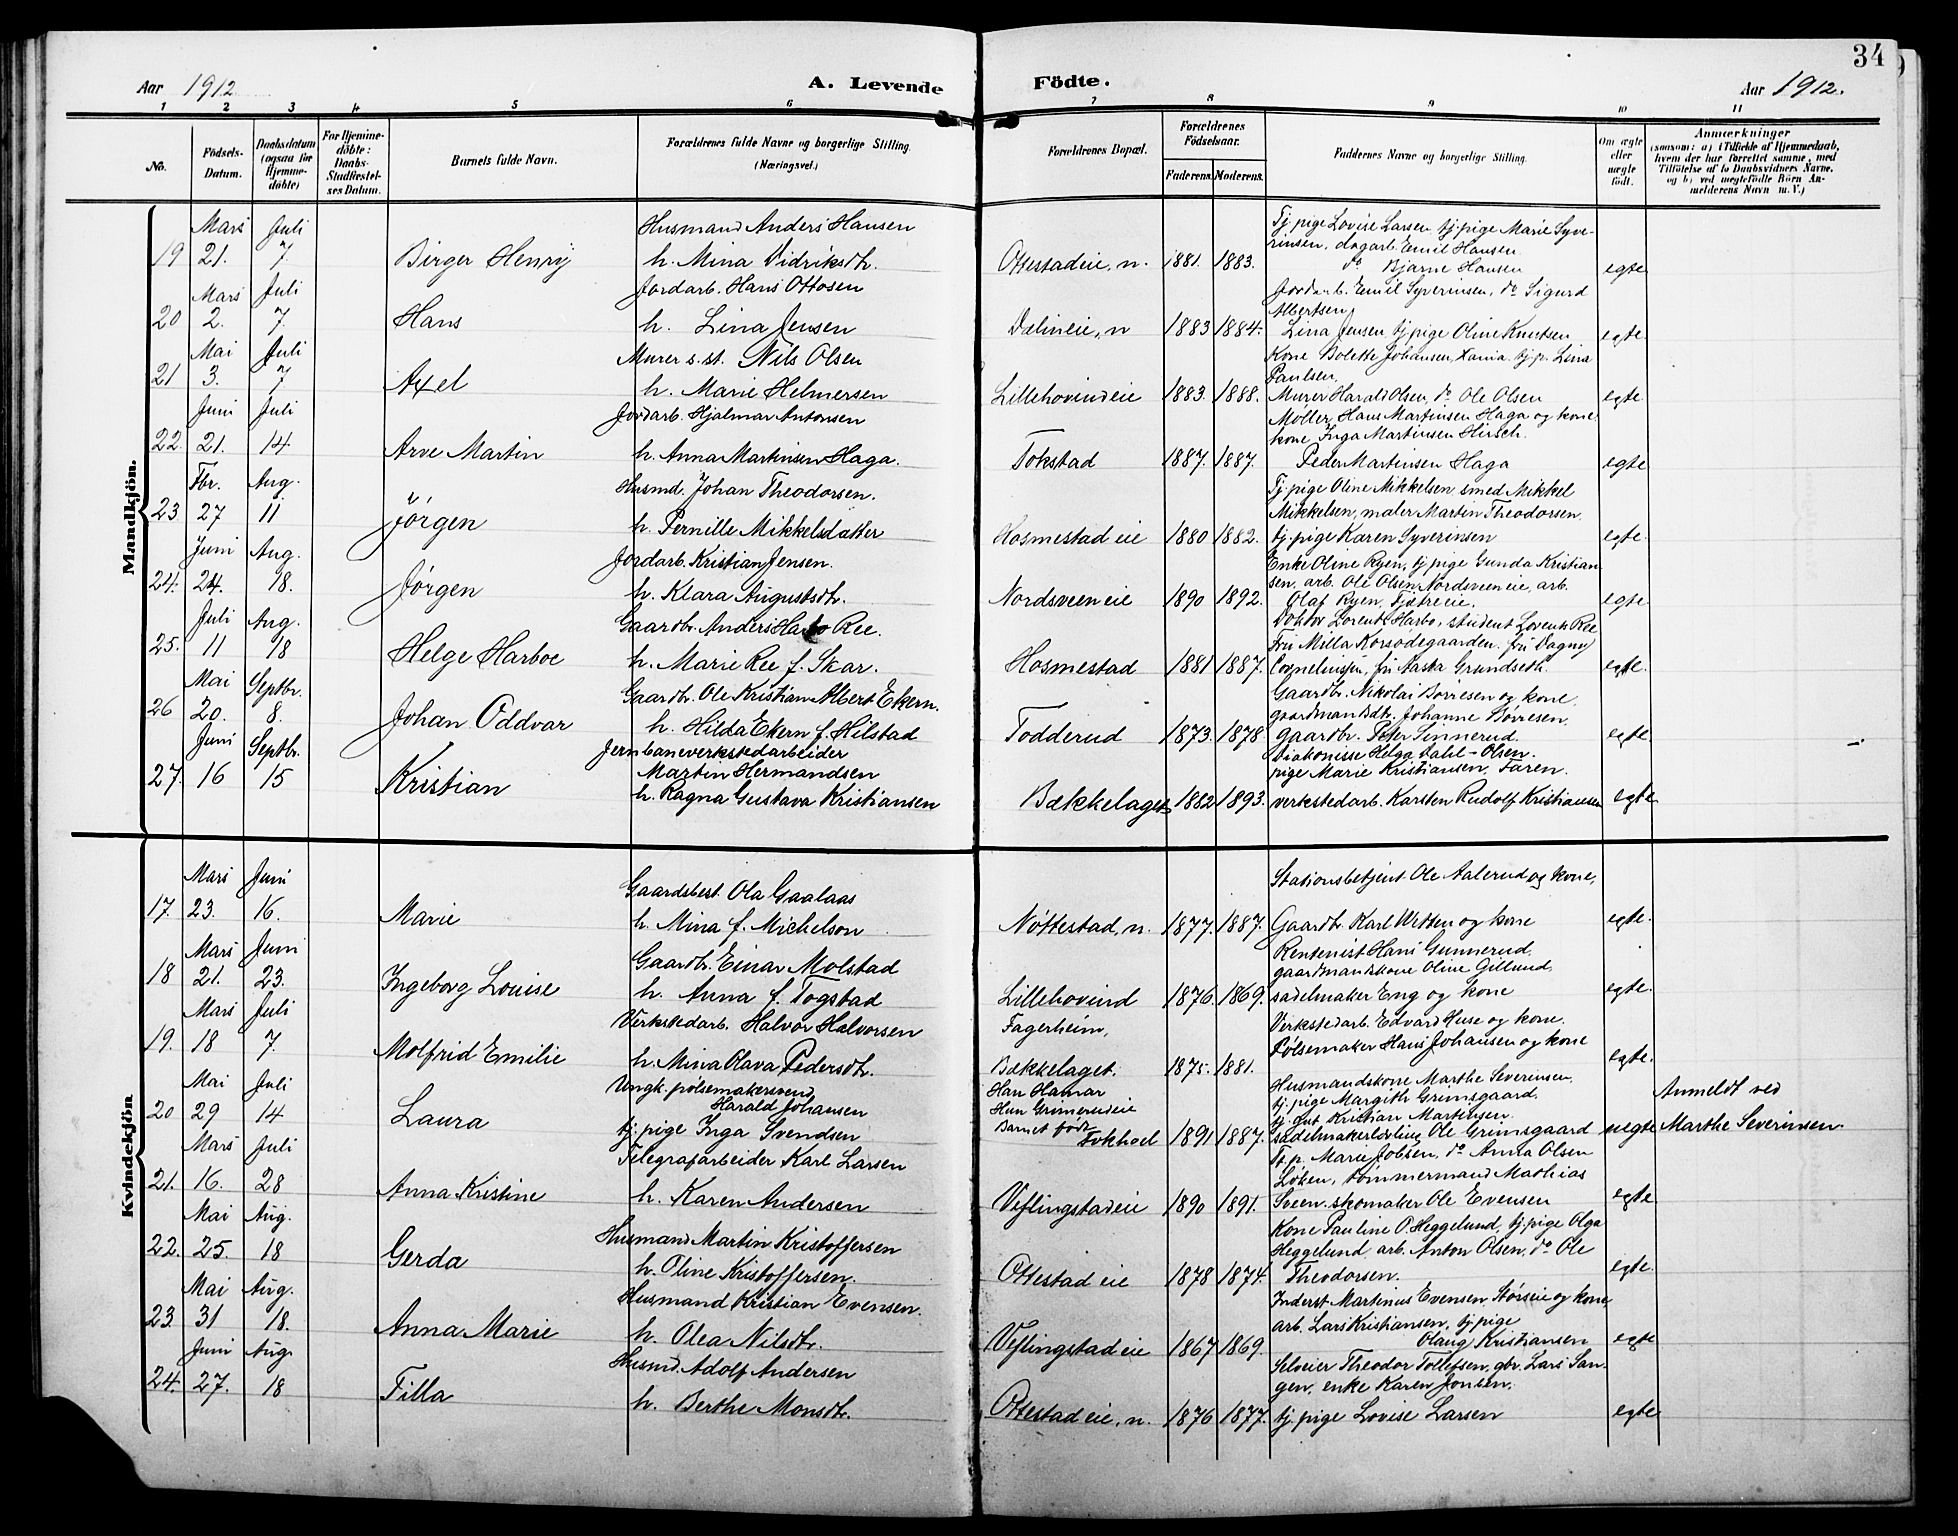 34
Aar 1912. A. Levende Födte. Aar 1912.
1 2 3 4 5 6 7 8 9 10 11
No. Födsels-Datum. Daabsdatum (ogsaa for Hjemme-döbte) For Hjemme-döbte: Daabs-Stadfæstel-ses Datum. Barnets fulde Navn. Forældrenes fulde Navne og borgerlige Stilling. (Næringsvei.) Forældrenes Bopæl. Forældrenes Födselsaar. Faderens. Moderens. Faddernes Navne og borgerlige Stilling. Om ægte eller uægte født. Anmærkninger (saasom: a) i Tilfælde af Hjemmedaab, hvem der har forrettet samme, med Tilföielse af to Daabsvidners Navne, og b) ved uægtefödte Börn An-melderens Navn m. V.)
Mandkjön.
Mars Juli Husmand Anders Hansen Tj.pige Lovise Larsen, tj.pige Marie Syve-
rinsen, dagarb. Emil Hansen
19 21. 7. Birger Henry h. Mina Didriksdtr. Ottestadeie, n. 1881. 1883. do Bjarne Hansen egte
Mars Juli Jordarb. Hans Ottosen Jordarb. Emil Syverinsen, do Sigurd
Albertsen,
20 2. 7. Hans h. Lina Jensen Dalineie, n 1883 1884. Lina Jensen tj.pige Oline Knutsen egte
Mai Juli Murer s.st. Nils Olsen Kone Bolette Johansen, Xania. tj.p. Lina
Paulsen,
21 3. 7 Axel h. Marie Helmersen Lillehovindeie 1883. 1888. Murer Harald Olsen, do Ole Olsen egte
Juni Juli Jordarb. Hjalmar Antonsen Møller Hans Martinsen Haga og kone
kone Inga Martinsen Hirsch.
22. 21. 14 Arve Martin h. Anna Martinsen Haga. Tokstad 1887. 1887. Peder Martinsen Haga egte
Fbr. Aug. Husmd. Johan Theodorsen. Tj.pige Oline Mikkelsen, smed Mikkel
Mikkelsen, maler Martin Theodorsen,
23 27 11 Jörgen h. Pernille Mikkelsdatter Hosmestad eie 1880 1882. tj.pige Karen Syverinsen egte.
Juni Aug. Jordarb. Kristian Jensen. Enke Oline Ryen, tj.pige Gunda Kristian
sen, arb. Ole Olsen, Nordsveneie, arb.
24. 24. 18. Jörgen h. Klara Augustsdtr. Nordsveeneie 1890 1892. Olaf Ryen, Tjetreeie. egte
Juli Aug. Gaardbr. Anders Harbo Ree. Doktor Lorents Harbo, student Lorents Ree
Fru Milla Korsødegaarden, fru Dagny
25. 11 18 Helge Harboe h. Marie Ree f. Skar. Hosmestad 1881 1887. Cornelinsen, fru Aasta Grundseth. egte.
Mai Septbr. Gaardbr. Ole Kristian Albert Ekern. Gaardbr. Nikolai Børresen og kone,
gaardmandsdtr. Johanne Børresen,
26 20. 8. Johan Oddvar h. Hilda Ekern f. Hilstad Todderud 1873. 1878. gaardbr. Peter Sinnerud egte
Juni Septbr. Jernbaneverkstedarbeider Diakonisse Helga Dahl-Olsen.
Martin Hermandsen pige Marie Kristiansen, Faren.
27. 16 15 Kristian h. Ragna Gustava Kristiansen Bækkelaget 1882 1893. verkstedarb. Karsten Rudolf Kristiansen egte
Kvindekjön
Mars Juni Gaardsbest. Ola Gaalaas Stationsbetjent Ole Aalerud og kone,
17. 23. 16. Marie h. Mina f. Michelson Nøttestad, n. 1877. 1887. Gaardbr. Karl Wetten og kone egte.
Mars Juni Gaardbr. Einar Molstad Rentenist Hans Gunnerud,
gaardmandskone Oline Gillund,
18 21. 23. Ingeborg Louise h. Anna f. Togstad Lillehovind 1876. 1869. sadelmaker Eng og kone egte.
Mars Juli Verkstedarb. Halvor Halvorsen Fagerheim, Verkstedarb. Edvard Huse og kone.
19. 18 7. Molfrid Emilie h. Mina Olava Pedersdtr. Bækkelaget. 1875. 1881. Pølsemaker Hans Johansen og kone egte.
Mai Juli Ungk. pølsemakersvend Han Hamar Husmandskone Marthe Severinsen, Anmeldt ved
Harald Johansen Hun Grimerudeie tj.pige Margith Grimsgaard,
Barnet født tj.gut Kristian Martinsen.
20 29 14 Laura tj.pige Inga Svendsen Fokhoel 1891 1887. sadelmakerlærling Ole Grimsgaard uegte Marthe Severinsen
Mars Juli Telegrafarbeider Karl Larsen Tj.p. Marie Jobsen, do Anna Olsen
Løken, tømmermand Mathias
21. 16. 28 Anna Kristine h. Karen Andersen Veflingstadeie 1890 1891. Sveen. skomaker Ole Evensen egte
Mai Aug. Husmand Martin Kristoffersen Kone Pauline O Heggelund, tj.pige Olga
Heggelund, arb. Anton Olsen, do Ole
22. 25. 18 Gerda h. Oline Kristoffersen. Ottestad eie 1878 1874. Theodorsen. egte.
Mai Aug. Husmand Kristian Evensen. Inderst Martinus Evensen, Størseie og kone,
arb. Lars Kristiansen, tj.pige
23. 31 18. Anna Marie h. Olea Nilsdtr. Veflingstadeie 1867 1869. Olaug Kristiansen egte
Juni Aug. Husmd. Adolf Andersen Selveier Theodor Tollefsen, gbr. Lars San-
gen, enke Karen Jonsen,
24. 27. 18 Tilla h. Berthe Monsdtr. Ottestad eie, n. 1876 1877. tj.pige Lovise Larsen egte